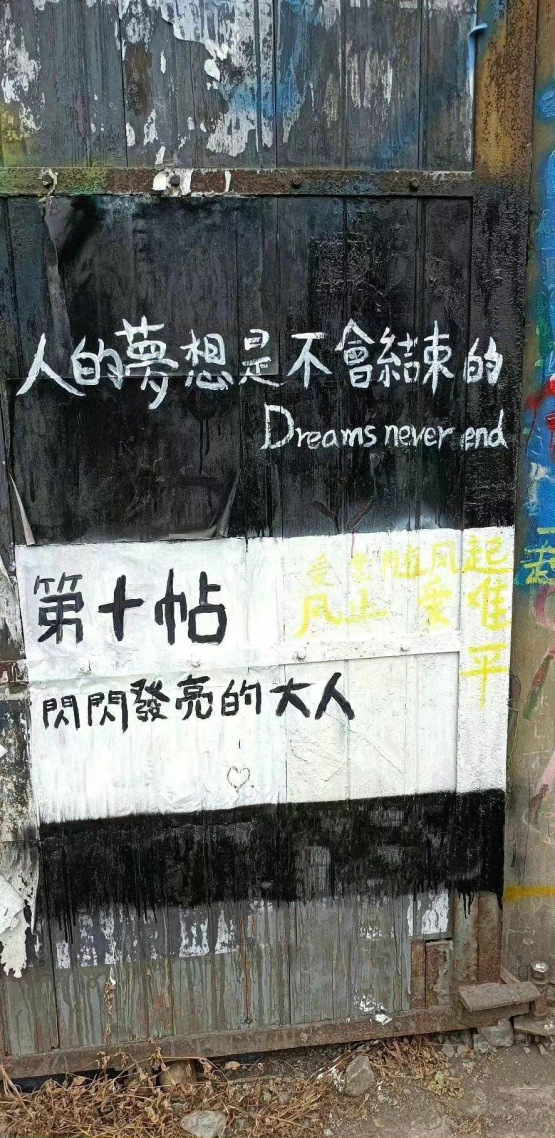 人的夢想是不會結束的
Dreams never end
第十帖
爱意随风起
风止爱难
平
閃閃發亮的大人